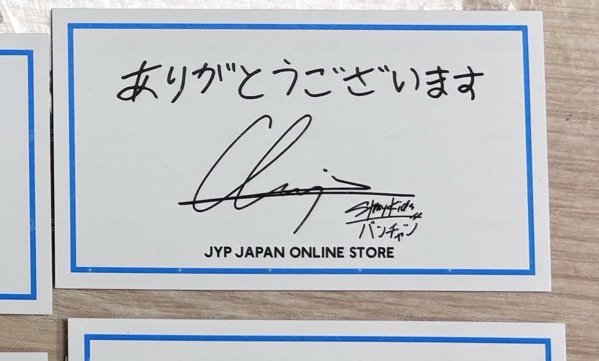 ありがとうございます
Stray Kids
バンチャン
JYP JAPAN ONLINE STORE